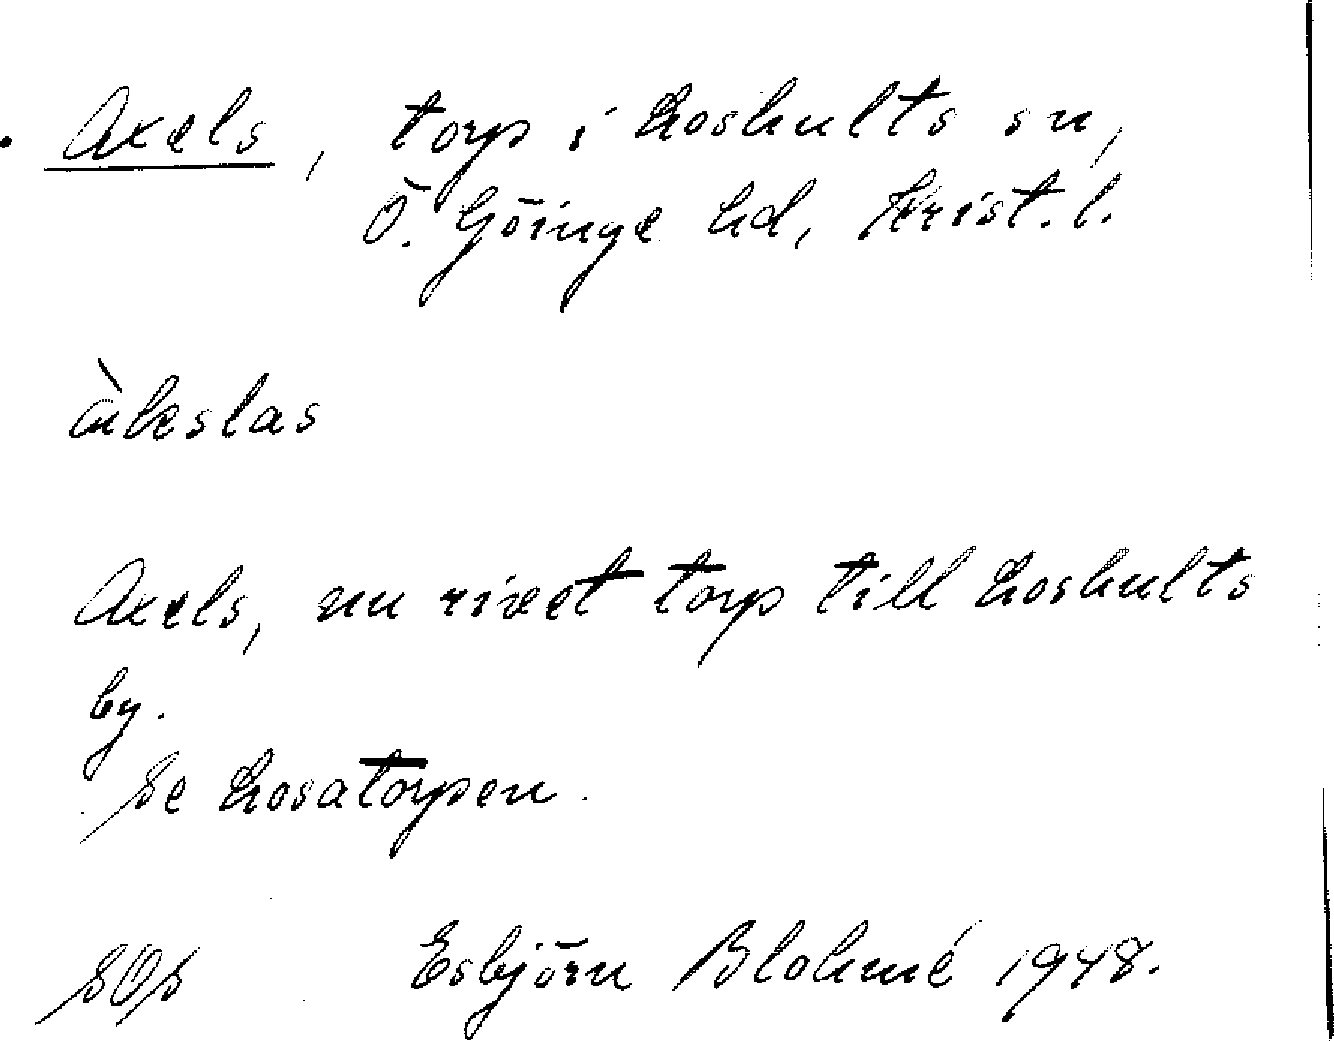 Axels, torp i Loshults sn,
Ö. Göinge hd, Krist. l.
àkslas
Axels, nu rivet torp till Loshults
by.
Se Losatorpen.
SOS Esbjörn Blohmé 1948.